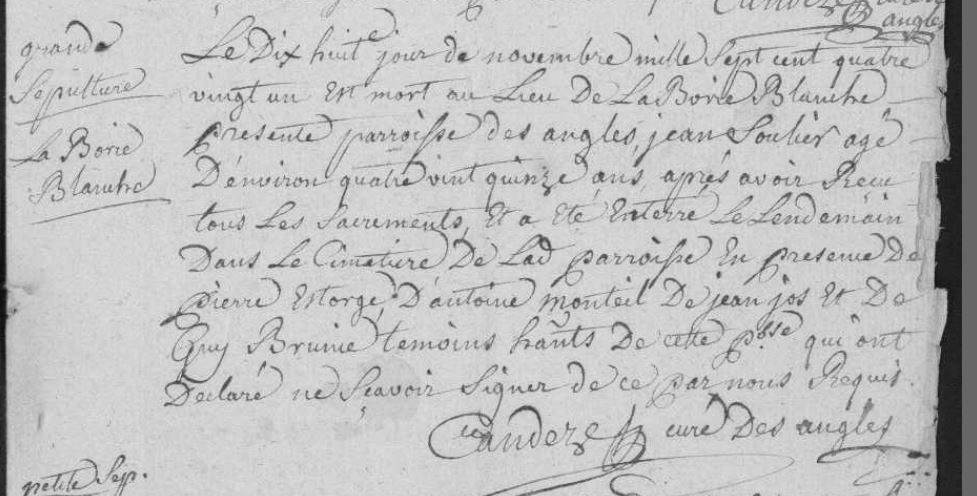 angles
grande
Sepulture
La Borie
Blanche
Le Dix huite jour de novembre mille Sept cent quatre
vingt un Est mort au Lieu De La Borie Blanche
presente parroisse des angles, jean Soulier agé
D'environ quatre vint quinze ans, aprés avoir Recu
tous Les Sacrements, Et a eté Enterré Le Lendemain
Dans Le Cimetiere De Lad parroisse En presence De
pierre Estorge, D'antoine monteil De jean jos Et De
Guy Brunie temoins hãnts De cette pbsse qui ont
Declaré ne Sçavoir Signer de ce par nous Requis.
Candeze curé Des angles
petite Sep.